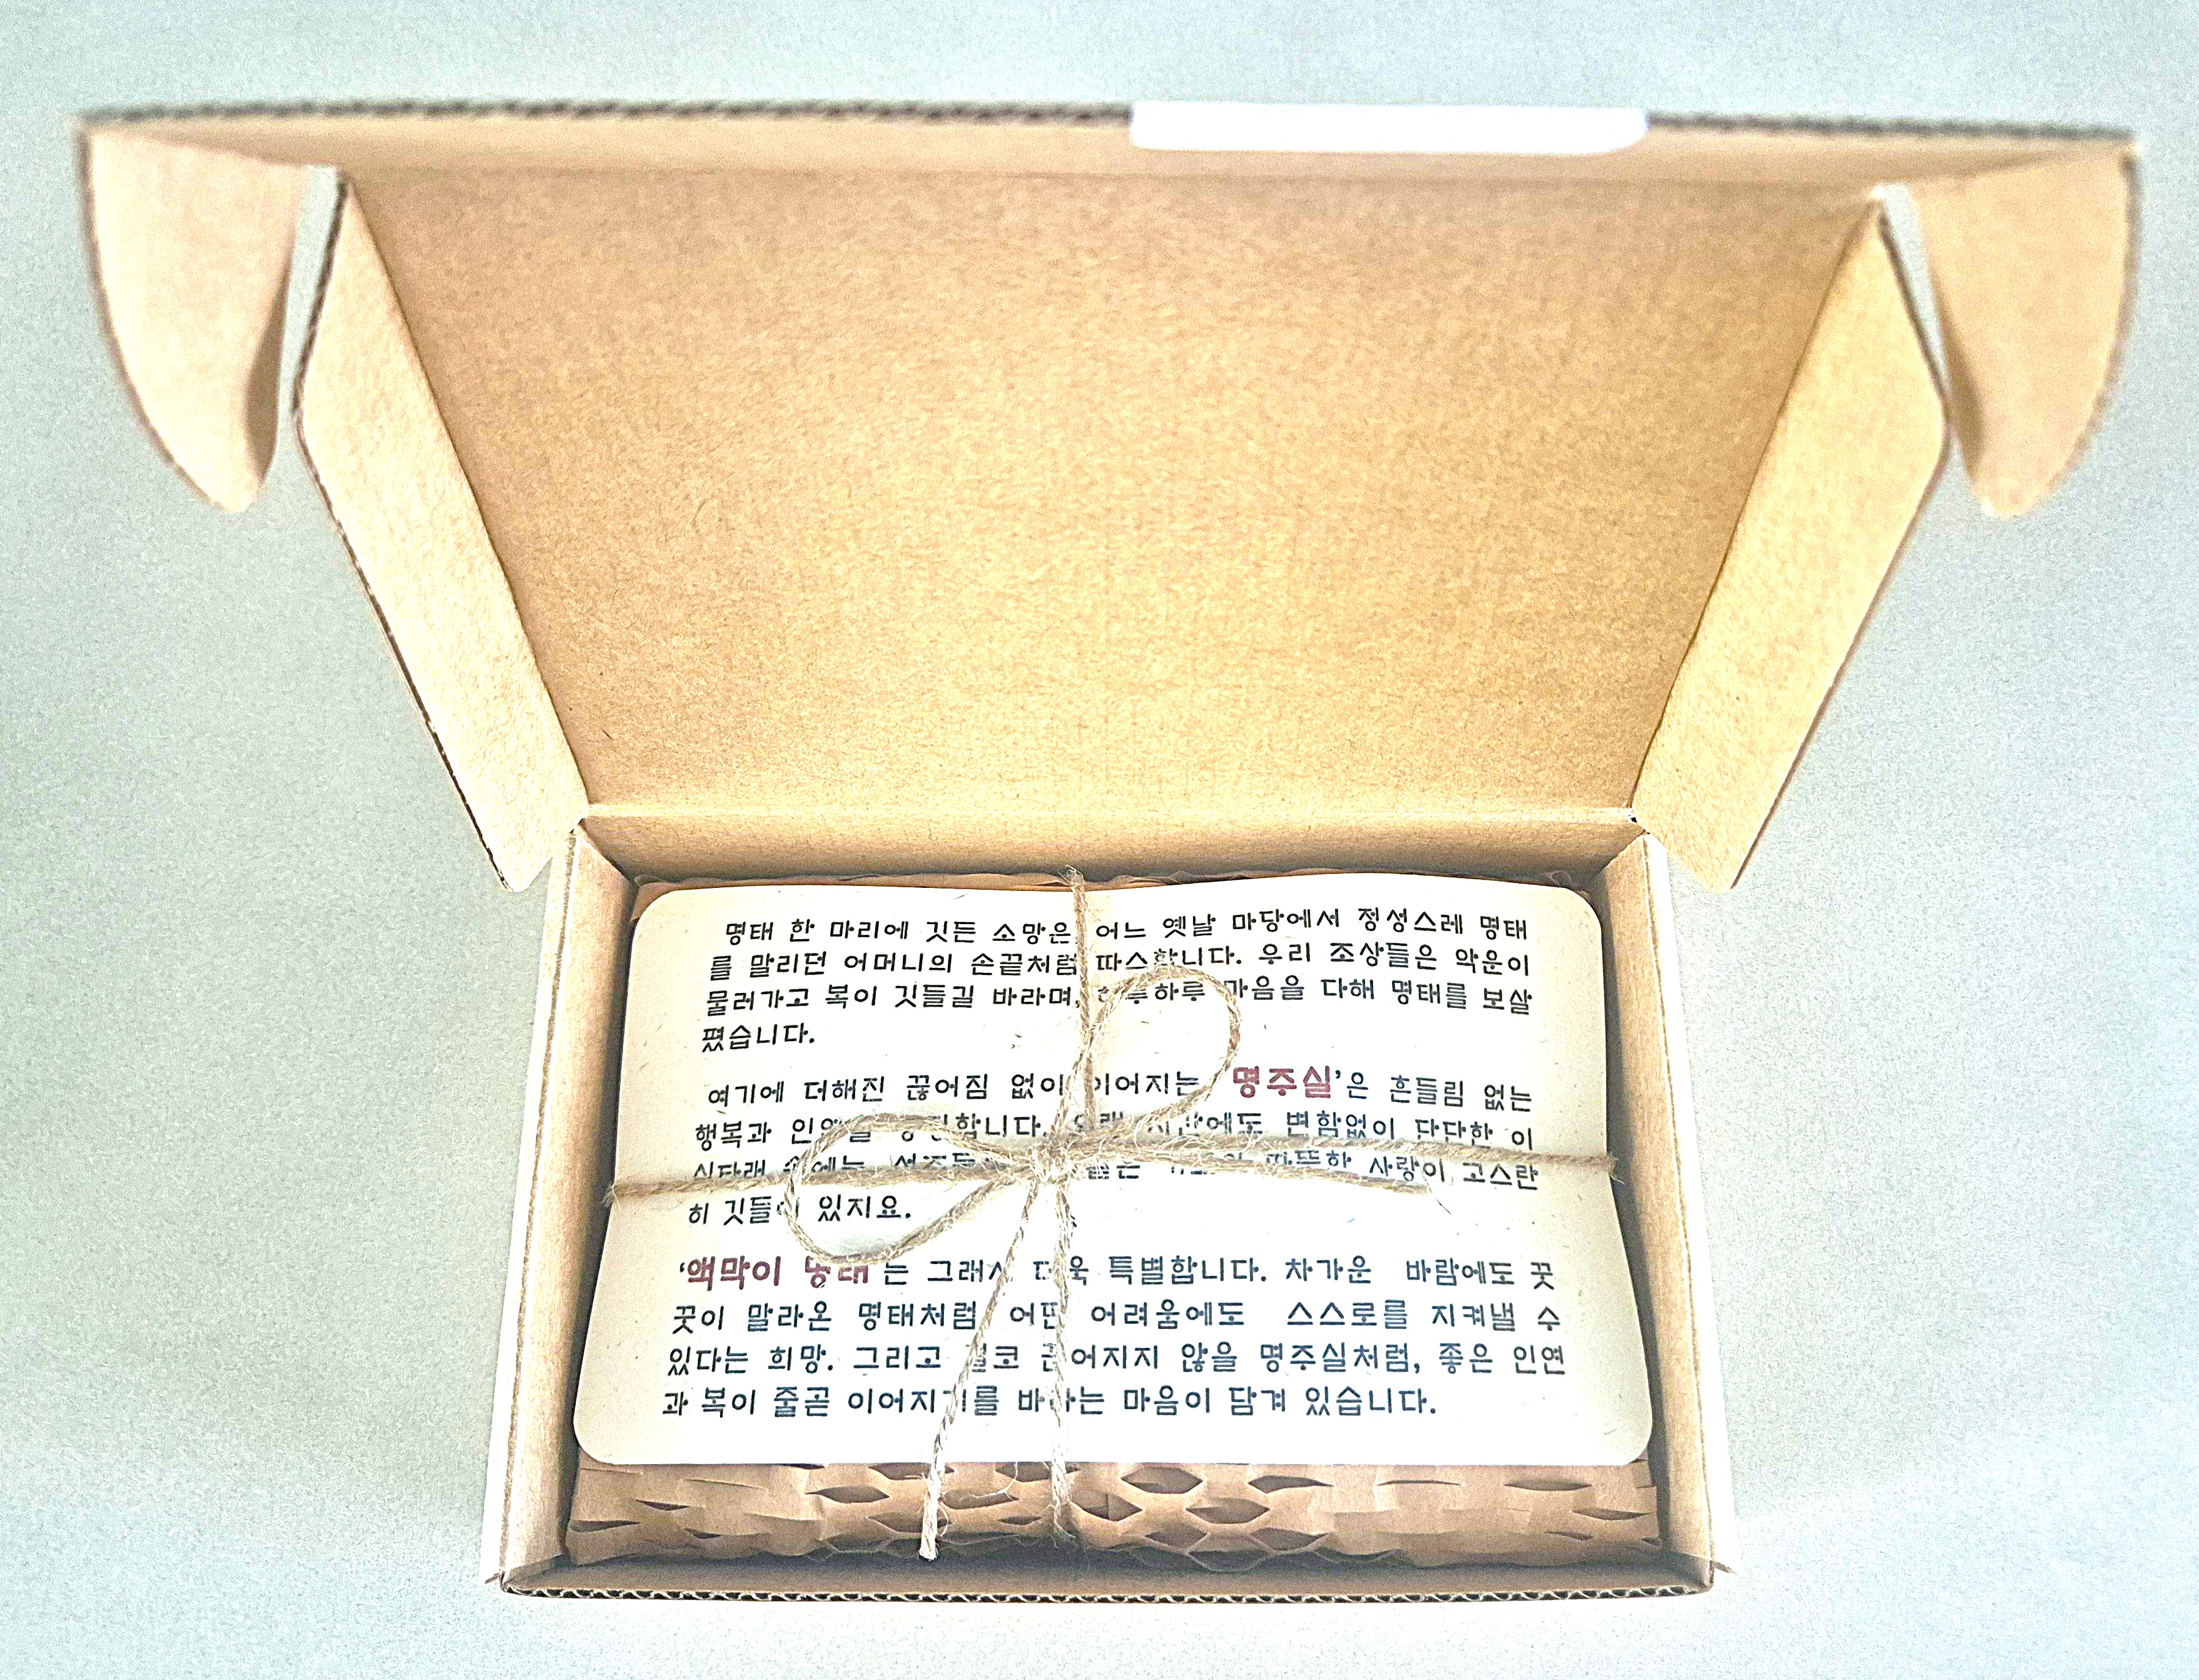 명태 한 마리에 깃든 소망은, 어느 옛날 마당에서 정성스레 명태
를 말리던 어머니의 손끝처럼 따스합니다. 우리 조상들은 악운이
물러가고 복이 깃들길 바라며, 하루하루 마음을 다해 명태를 보살
폈습니다.
여기에 더해진 끊어짐 없이 이어지는 '명주실'은 흔들림 없는
행복과 인연을 변함없이 단단한 이
사랑이 고스란
히 깃들어 있지요.
'액막이 는 그래서 더욱 특별합니다. 차가운 바람에도 꿋
꿋이 말라온 명태처럼 어떤 어려움에도 스스로를 지켜낼 수
있다는 희망. 그리고 결코 끊어지지 않을 명주실처럼, 좋은 인연
과 복이 줄곧 이어지기를 바라는 마음이 담겨 있습니다.